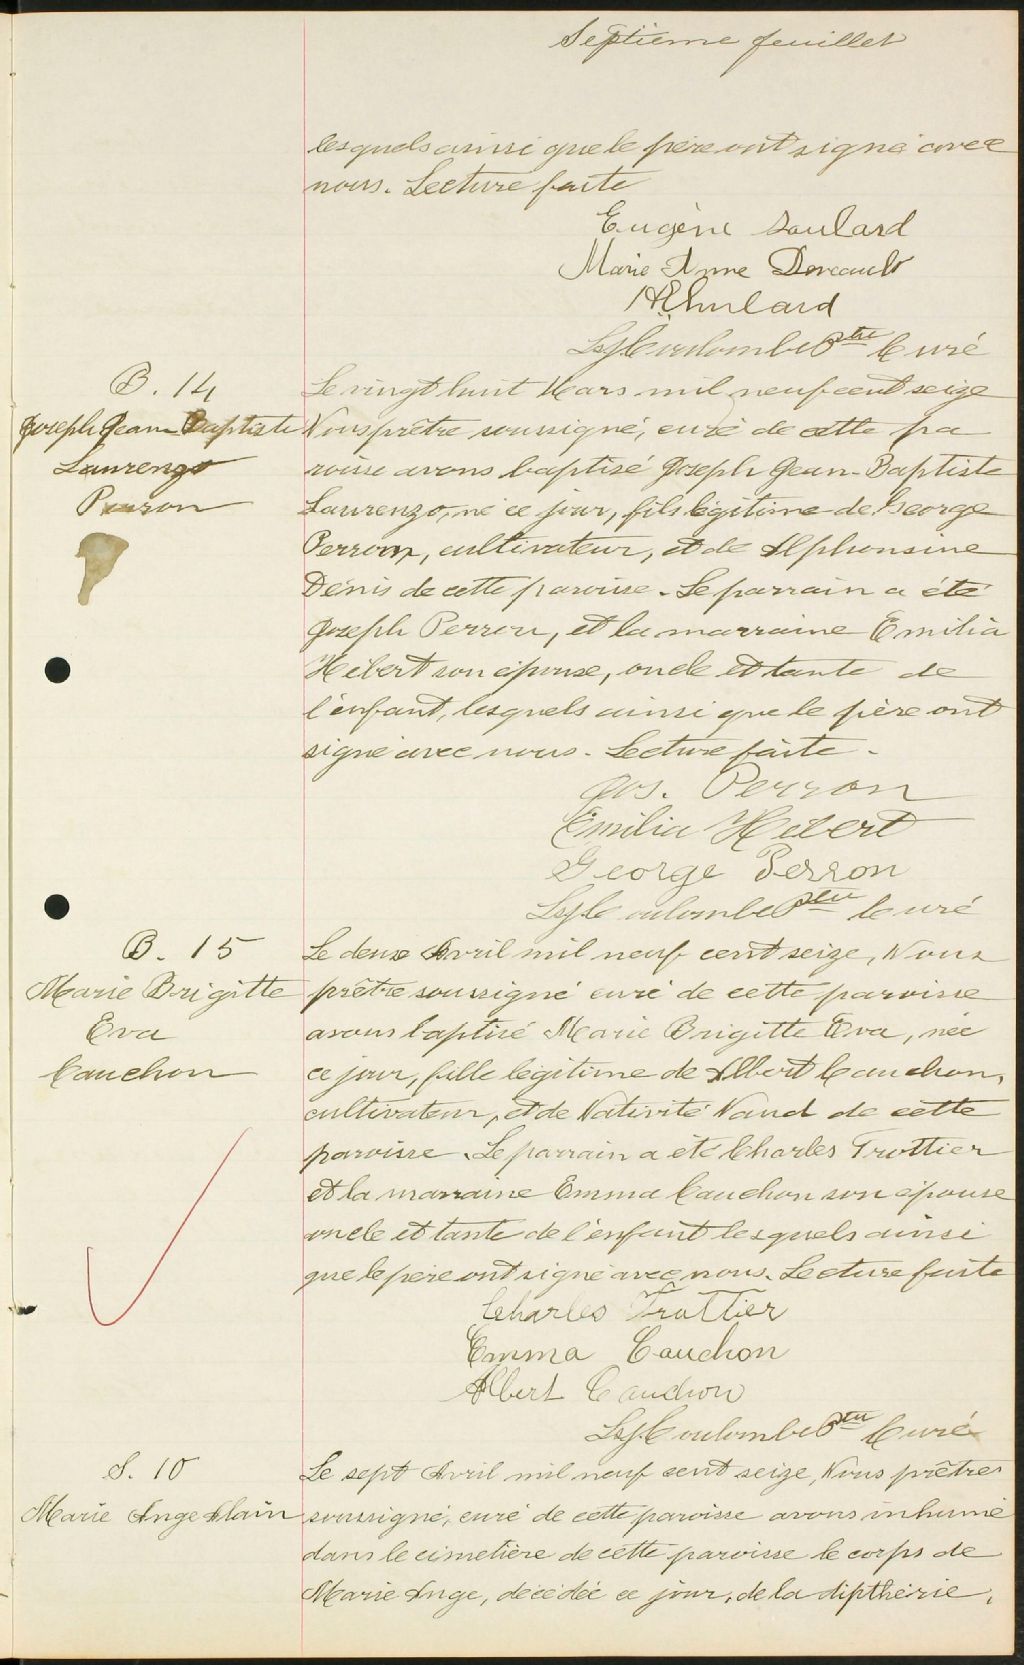 Septième feuillet
lesquels ainsi que le père ont signé avec
nous. Lecture faite
Eugène Soulard
Marie Anne Doreault
Soulard
Coulombe Ptre Curé
B. 14
Joseph Jean Baptiste
Laurenzo
Perron
Le vingt huit Mars mil neuf cent seize
Nous prêtre soussigné, curé de cette pa
roisse avons baptisé Joseph Jean-Baptiste
Laurenzo, né ce jour, fils légitime de George
Perron, cultivateur, et de Alphonsine
Dénis de cette paroisse. Le parrain a été
Joseph Perron, et la marraine Emilia
Hébert son épouse, oncle et tante de
l'enfant, lesquels ainsi que le père ont
signé avec nous. Lecture faite.
Jos. Perron
Emilia Hebert
George Perron
Coulombe Ptre Curé
B. 15
Marie Brigitte
Eva
Cauchon
Le deux Avril mil neuf cent seize, Nous
prêtre soussigné curé de cette paroisse
avons baptisé Marie Brigitte Eva, née
ce jour, fille légitime de Albert Cauchon,
cultivateur, et de Nativité Naud de cette
paroisse. Le parrain a été Charles Trottier
et la marraine Emma Cauchon son épouse
oncle et tante de l'enfant lesquels ainsi
que le père ont signé avec nous. Lecture faite
Charles Trottier
Emma Cauchon
Albert Cauchon
Coulombe Ptre Curé
S. 10
Marie Ange Alain
Le sept Avril mil neuf cent seize, Nous prêtre
soussigné, curé de cette paroisse avons inhumé
dans le cimetière de cette paroisse le corps de
Marie Ange, décédée ce jour, de la dipthérie,